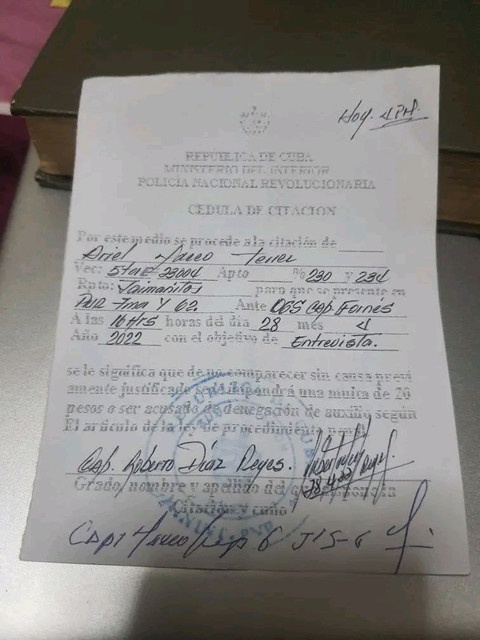 Hoy. 4 PM.
REPUBLICA DE CUBA
MINISTERIO DEL INTERIOR
POLICIA NACIONAL REVOLUCIONARIA
CEDULA DE CITACION
Por este medio se procede a la citación de
Ariel
Vec: 5ta E 23004 Apto N/o 230 y 234
Rpto: Jaimanitas para que se presente en
7ma y 62. Ante Cap.
A las 16 Hrs horas del día 28 més 4
Año 2022 con el objetivo de Entrevista.
se le significa que de no comparecer sin causa previ
amente justificada se le impondrá una multa de 20
pesos o ser acusado de denegación de auxilio según
El articulo de la ley de procedimiento penal
Cap. Roberto Díaz Reyes.
Grado, nombre y apellido del que
Citación y cuño